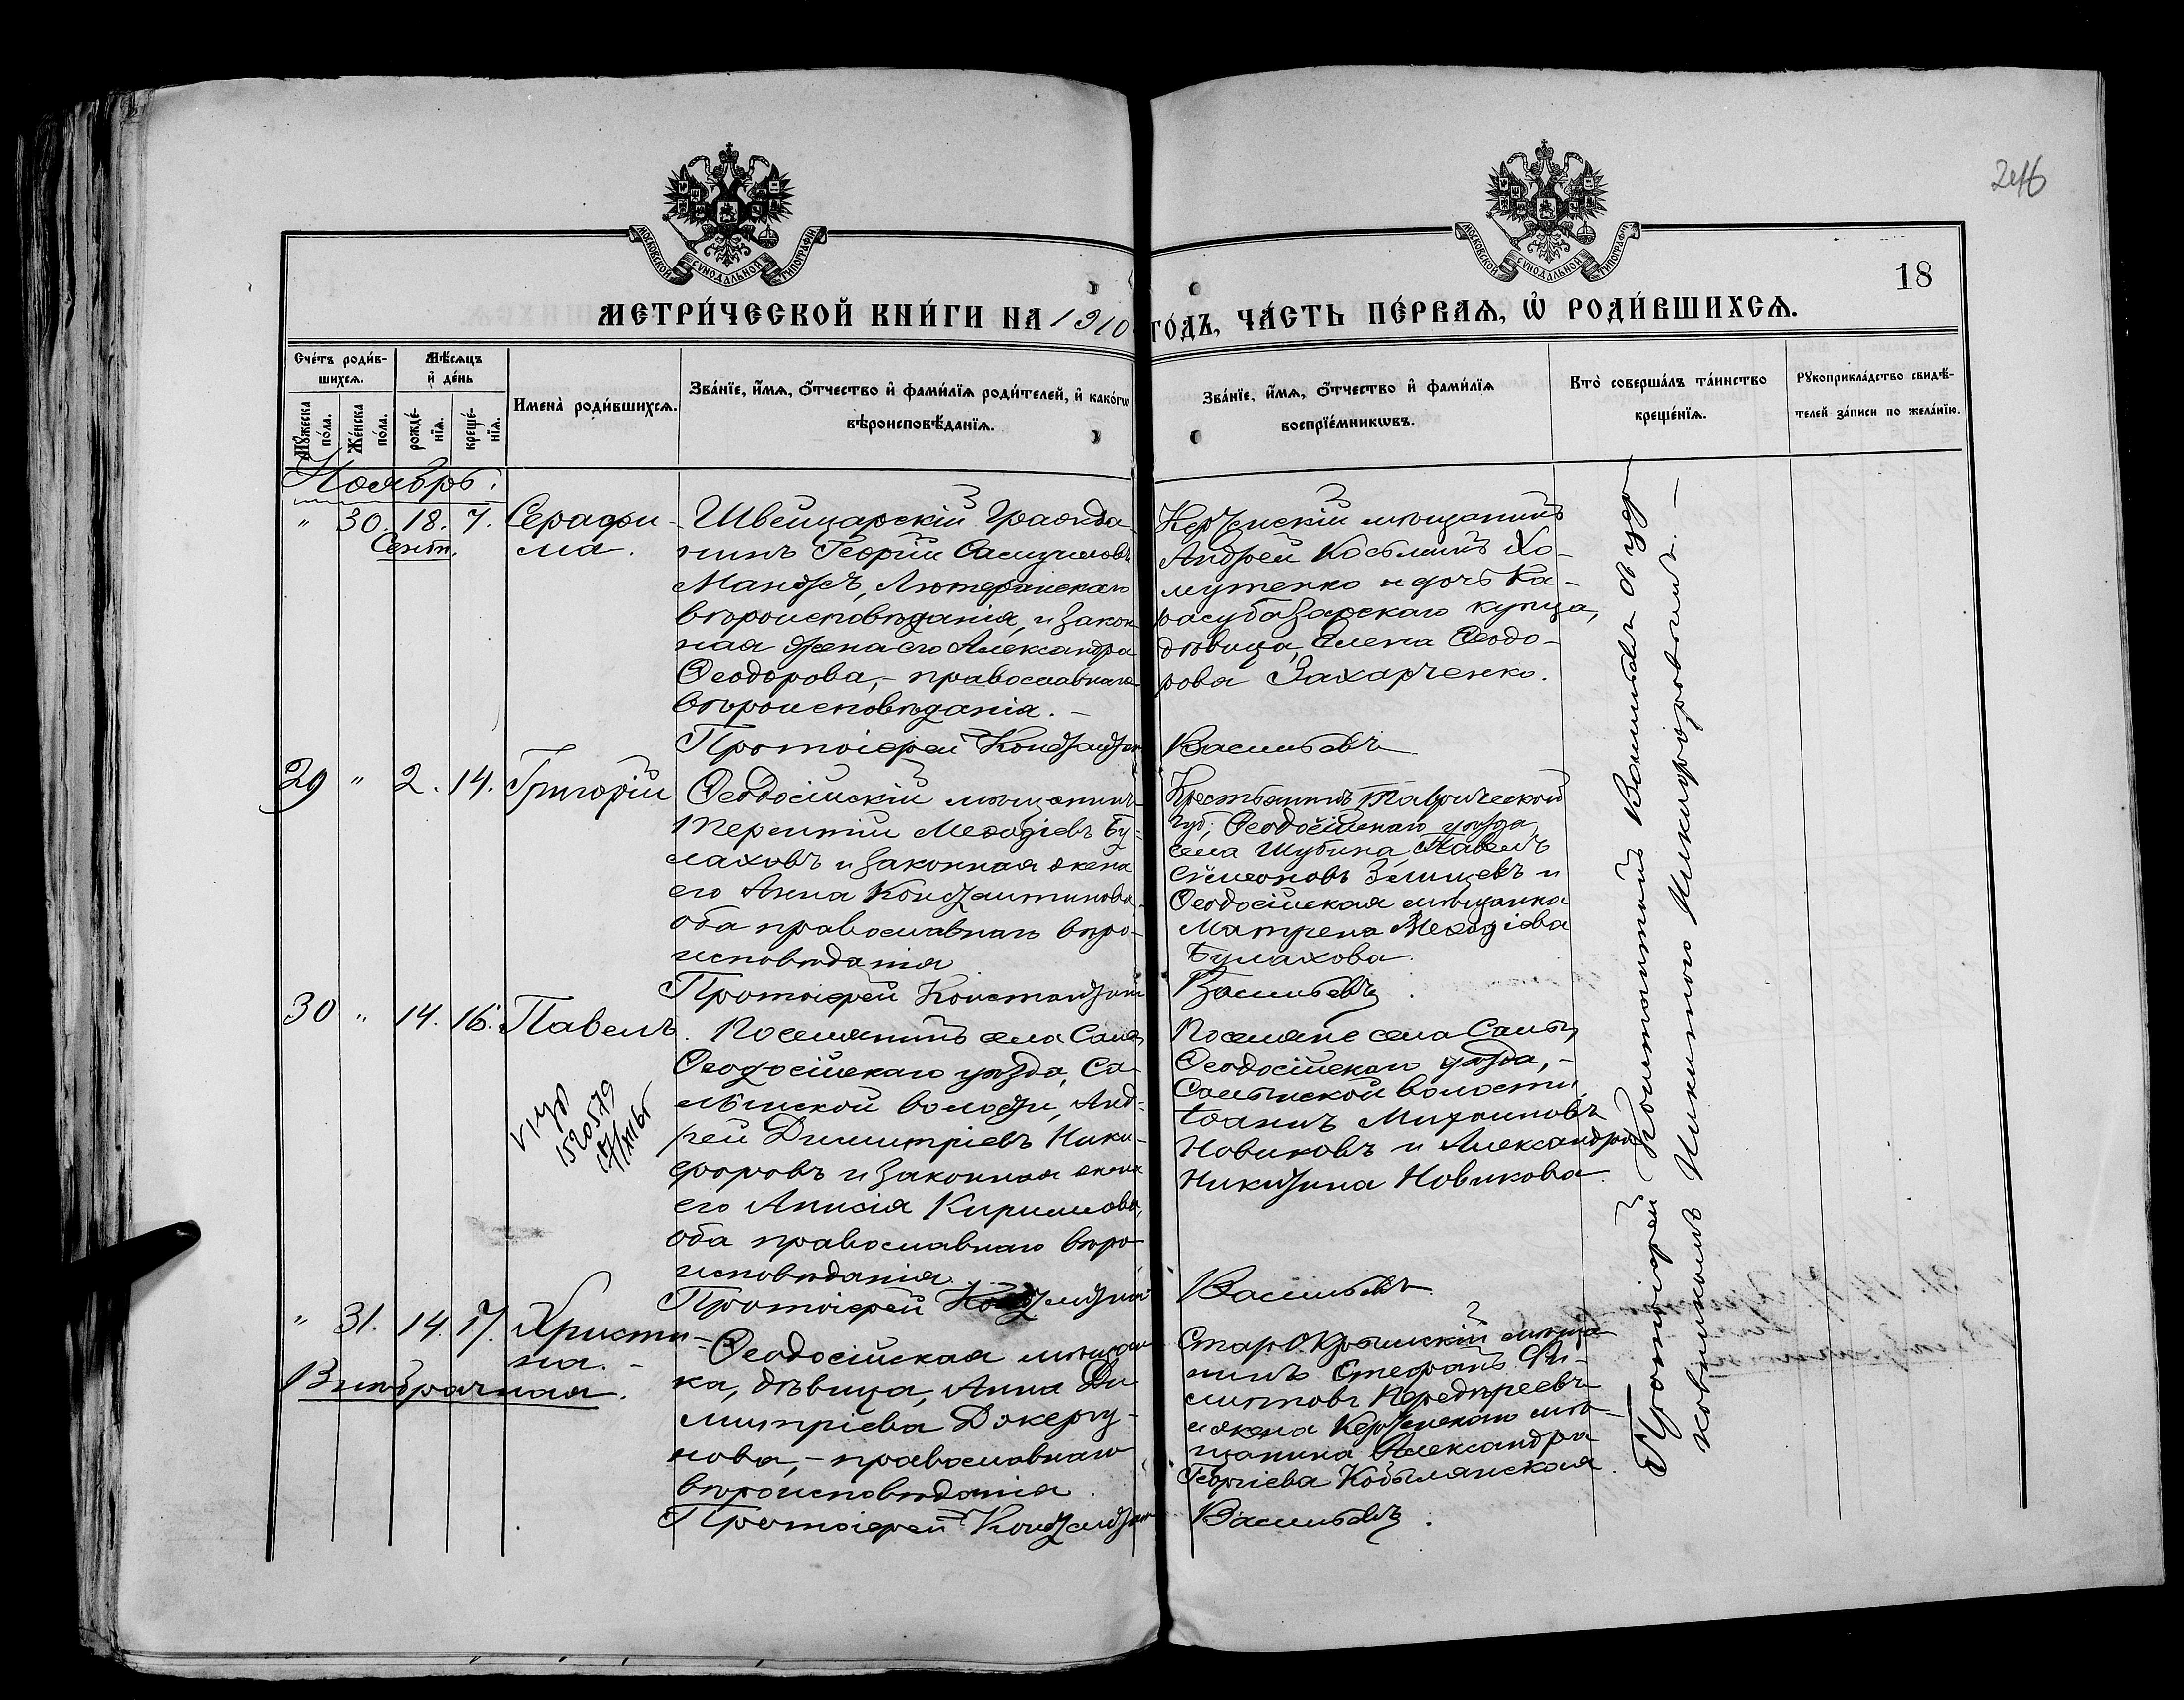 246
МОСКОВСКОЙ СѴНОДАЛЬНОЙ ТИПОГРАФІИ
МОСКОВСКОЙ СѴНОДАЛЬНОЙ ТИПОГРАФІИ
18
МЕТРИ́ЧЕСКОЙ КНИ́ГИ НА 1910 ГО́ДЪ, ЧА́СТЬ ПЕ́РВАѦ, Ѡ҆ РОДИ́ВШИХСѦ.
Сче́тъ роди́в-
шихсѧ.
Мꙋ́жеска по́ла.
Же́нска по́ла.
Мѣ́сѧцъ
и҆ де́нь
рожде́-
нїѧ.
креще́-
нїѧ.
Имена̀ роди́вшихсѧ.
Зва́нїе, и҆́мѧ, ѻ҆́тчество и҆ фами́лїѧ роди́телей, и҆ како́гѡ
вѣроисповѣ́данїѧ.
Зва́нїе, и҆́мѧ, ѻ҆́тчество и҆ фами́лїѧ
воспрїе́мникѡвъ.
Кто̀ соверша́лъ та́инство
креще́нїѧ.
Рꙋкоприкла́дство свидѣ́-
телей за́писи по жела́нїю.
Ноябрь.
" 30. 18. 7. Серафи-
Сент. ма.
Швейцарскій гражда-
нинъ Георгій Самуиловъ
Мандръ, Лютеранскаго
вѣроисповѣданія, и закон-
ная жена его Александра
Ѳеодорова, - православнаго
вѣроисповѣданія. -
Протоіерей Константин
Керченскій мѣщанинъ
Андрей Козьминъ Хо-
мутенко и дочь Ка-
расубазарскаго купца,
дѣвица, Елена Ѳеодо-
рова Захарченко.
Васильевъ
29 " 2. 14. Григорій
Ѳеодосійскій мѣщанинъ
Терентій Меѳодіевъ Бу-
лаховъ и законная жена
его Анна Константинова,
оба православнаго вѣро-
исповѣданія
Протоіерей Константин
Крестьянинъ Таврической
губ., Ѳеодосійскаго уѣзда,
села Шубина, Павелъ
Сѵмеоновъ и
Ѳеодосійская мѣщанка
Матрена Меѳодіева
Булахова.
Васильевъ
30 " 14. 16. Павелъ.
Поселянинъ села Салы
Ѳеодосійскаго уѣзда, Са-
лынской волости, Анд-
рей Димитріевъ Ники-
форовъ и законная жена
его Анисія Кириллова,
оба православнаго вѣро-
исповѣданія.
Протоіерей Константин
Поселяне села Салы,
Ѳеодосійскаго уѣзда, -
Салынской волости,
Іоаннъ Михаиловъ
Новиковъ и Александра
Никитина Новикова.
Васильевъ
1520579
" 31. 14. 17. Христи-
на. -
Внѣбрачная.
Ѳеодосійская мѣщан-
ка, дѣвица, Анна Ди-
митріева Джеру-
нова, - православнаго
вѣроисповѣданія.
Протоіерей Константин
Старо Крымскій мѣща-
нинъ Стефанъ Фи-
липповъ
и жена Керченскаго мѣ-
щанина Александра
Георгіева Кобылянская.
Васильевъ.
Протоіерей Константинъ Васильевъ съ цер-
ковникомъ Никитою Никифоровымъ. -